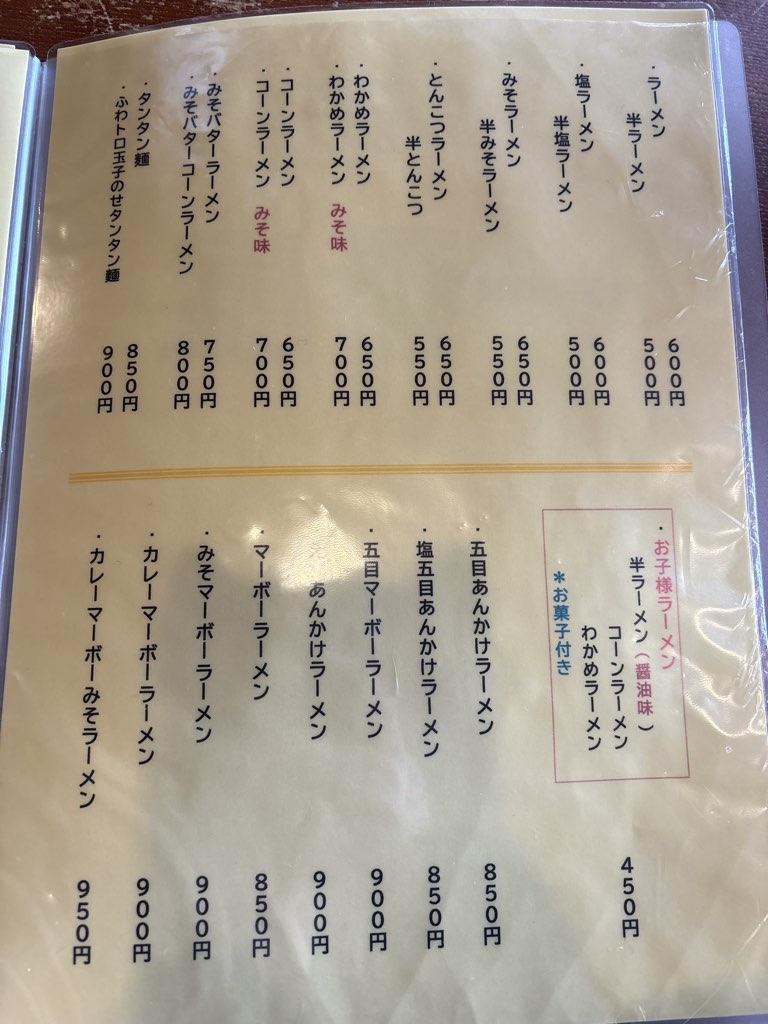 ・ラーメン 600円
半ラーメン 500円
・塩ラーメン 600円
半塩ラーメン 500円
・みそラーメン 650円
半みそラーメン 550円
・とんこつラーメン 650円
半とんこつ 550円
・わかめラーメン 650円
・わかめラーメン みそ味 700円
・コーンラーメン 650円
・コーンラーメン みそ味 700円
・みそバターラーメン 750円
・みそバターコーンラーメン 800円
・タンタン麺 850円
・ふわトロ玉子のせタンタン麺 900円
・お子様ラーメン
半ラーメン(醤油味)
コーンラーメン
わかめラーメン
450円
*お菓子付き
・五目あんかけラーメン 850円
・塩五目あんかけラーメン 850円
・五目マーボーラーメン 900円
あんかけラーメン 900円
・マーボーラーメン 850円
・みそマーボーラーメン 900円
・カレーマーボーラーメン 900円
・カレーマーボーみそラーメン 950円